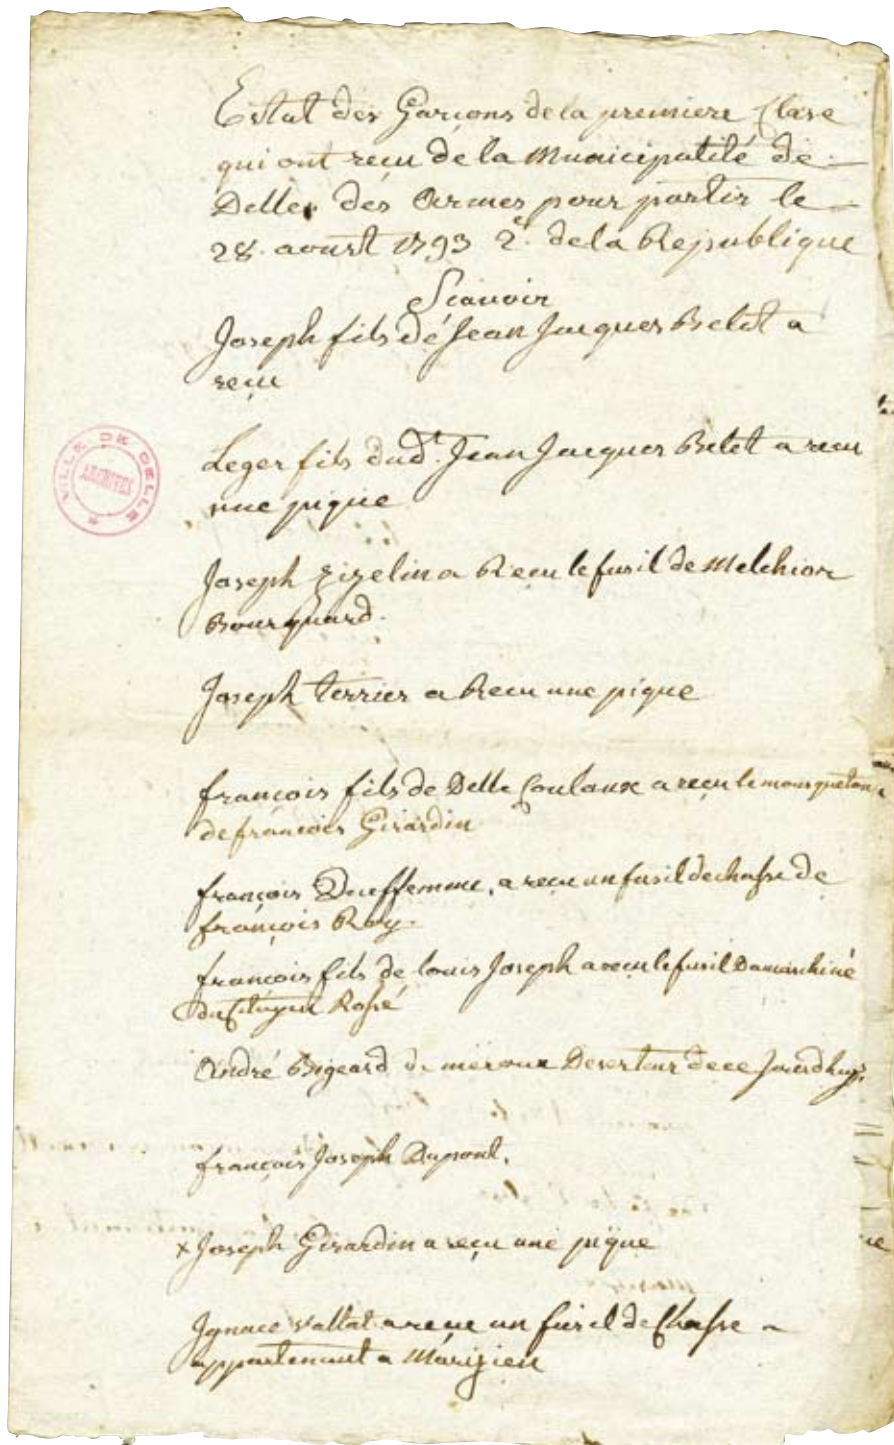 Estat des Garçons de la premiere Classe
qui ont reçu de la Municipalité de
Delle des Armes pour partir le
28. aoust 1793 2e. de la Republique
Scavoir
Joseph fils de Jean Jacques Belet a
reçu
Leger fils dud.t Jean Jacques Belet a recu
une pique
Joseph Zizelin a Recu le fusil de Melchior
Bourquard.
Joseph terrier a Recu une pique
françois fils de Delle Coulaux a reçu le mousqueton
de francois Girardin
françois, a recu un fusil de chasse de
françois Roy.
françois fils de louis Joseph a recu le fusil Damaschiné
du Citoyen Rossé
André Bigeard de meroux Deserteur de ce Jourdhuy
françois Joseph Dupont.
x Joseph Girardin a reçu une pique
Ignace Vallat a recu un fusil de Chasse
appartenant a Marizien
VILLE DE DELLE
ARCHIVES